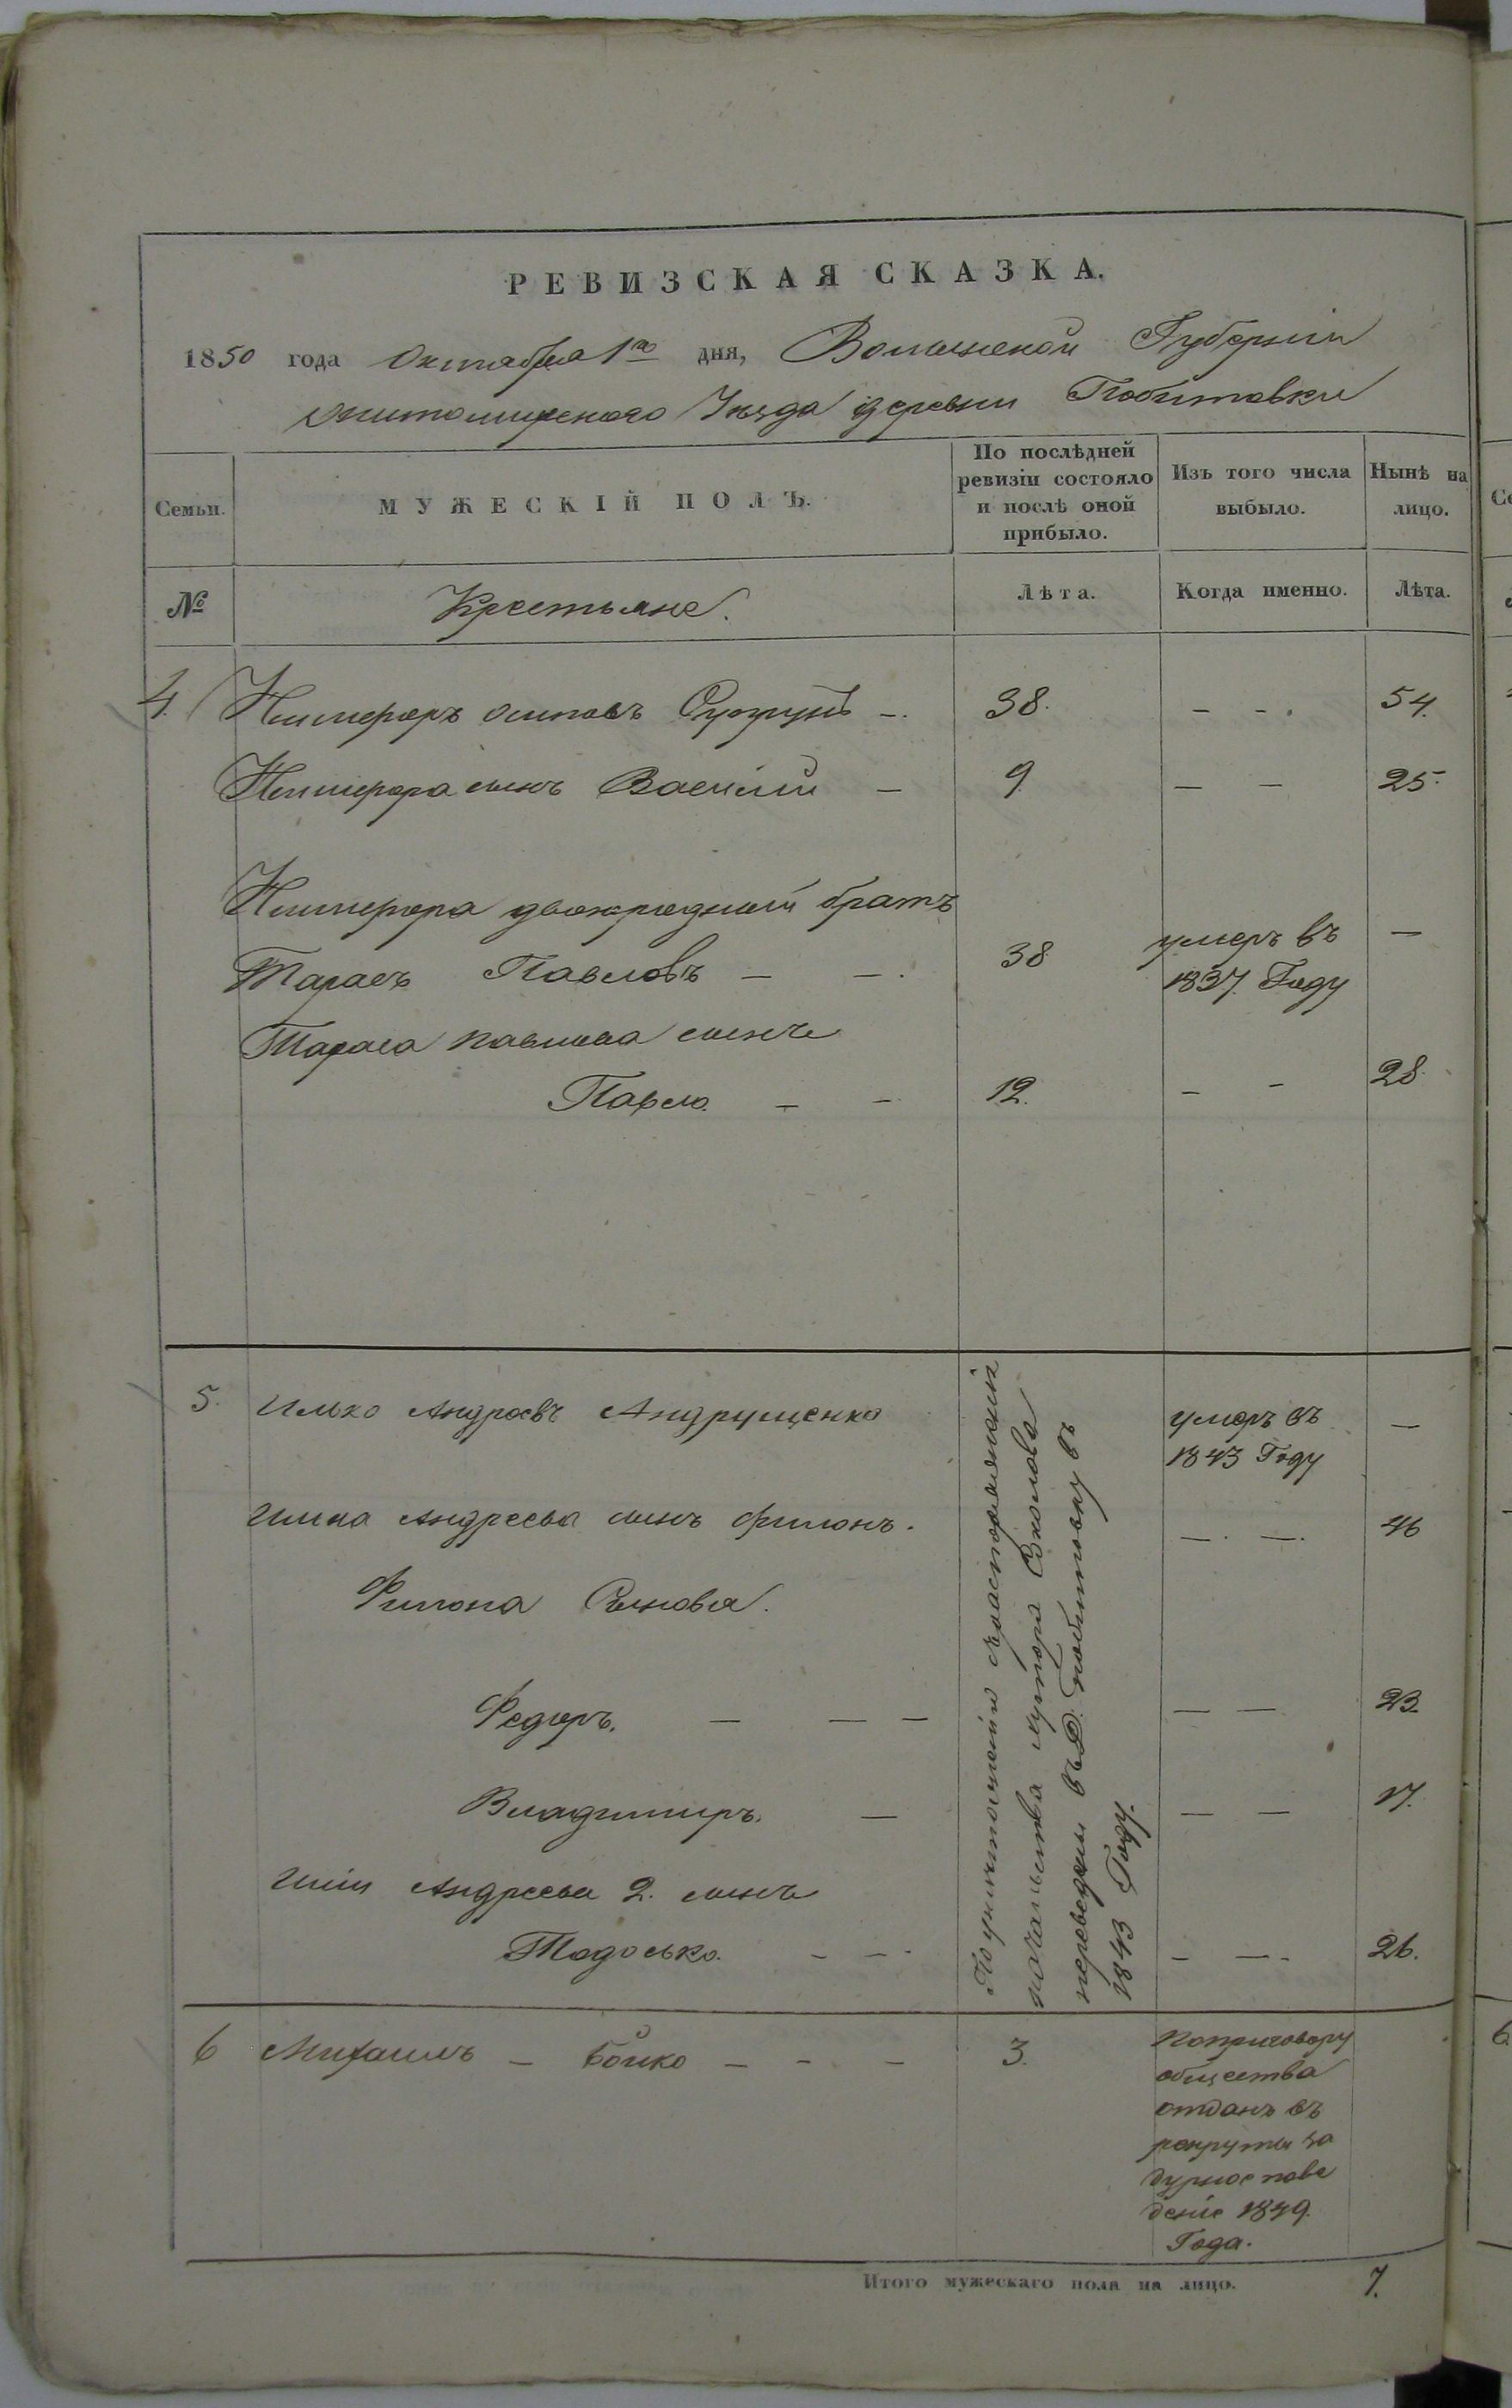 РЕВИЗСКАЯ СКАЗКА.
1850 года Октября 1го дня, Волынской Губерніи
Житомирского Уезда деревни Побитовки
Семьи. МУЖЕСКІЙ ПОЛЪ. По послѣдней ревизіи состояло и послѣ оной прибыло. Изъ того числа выбыло. Нынѣ на лицо.
№ Крестьяне. Лѣта. Когда именно. Лѣта.
4. Никифоръ Осиповъ 38. — — . 54.
Никифора сынъ Василій — 9 — — 25.
Никифора двоюродный братъ
Тарасъ Павловъ — — . 38 умеръ въ 1837 Году —
Тараса Павлова сынъ
Павло — — 12. — — 28
5. Илько Андреевъ Андрущенко умеръ въ 1843 Году —
Илька Андреева сынъ Филонъ. — . — . 46
Филона Сыновья.
Федоръ. — — — — — 23.
Владимиръ. — — — 17.
Андреева 2. сынъ
Тодосько. — — . — — . 26.
По распоряженію
начальства хутора Соколова
переведены въ Д: Побитовку въ
1843 Году.
6 Михаилъ — Бойко — — — 3.
по приговору
общества
отданъ въ
рекруты за
дурное пове
деніе 1849
Года.
Итого мужескаго пола на лицо. 7.